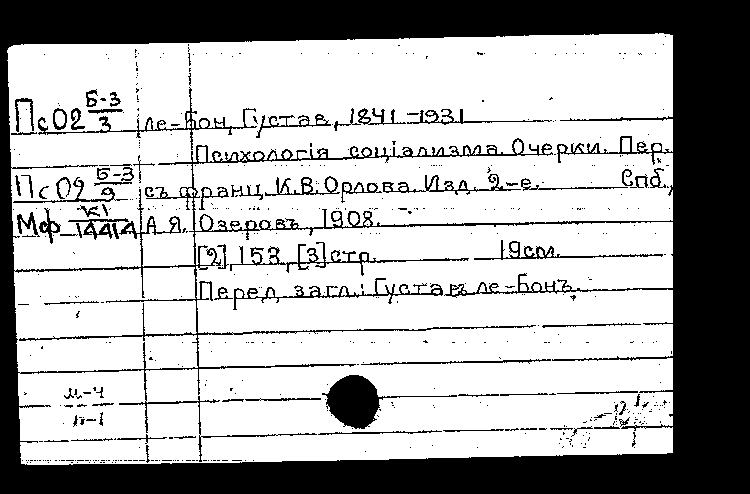 Пс02 Б-3/3 ле-Бон, Густав, 1841-1931
Психологія соціализма. Очерки. Пер.
Пс02 Б-3/9 съ франц. К.В. Орлова. Изд. 2-е. Спб.,
Мф К1/14414 А.Я. Озеровъ, 1908.
[2], 153, [3] стр. 19см.
Перед загл.: Густавъ ле-Бонъ.
м-4
п-1